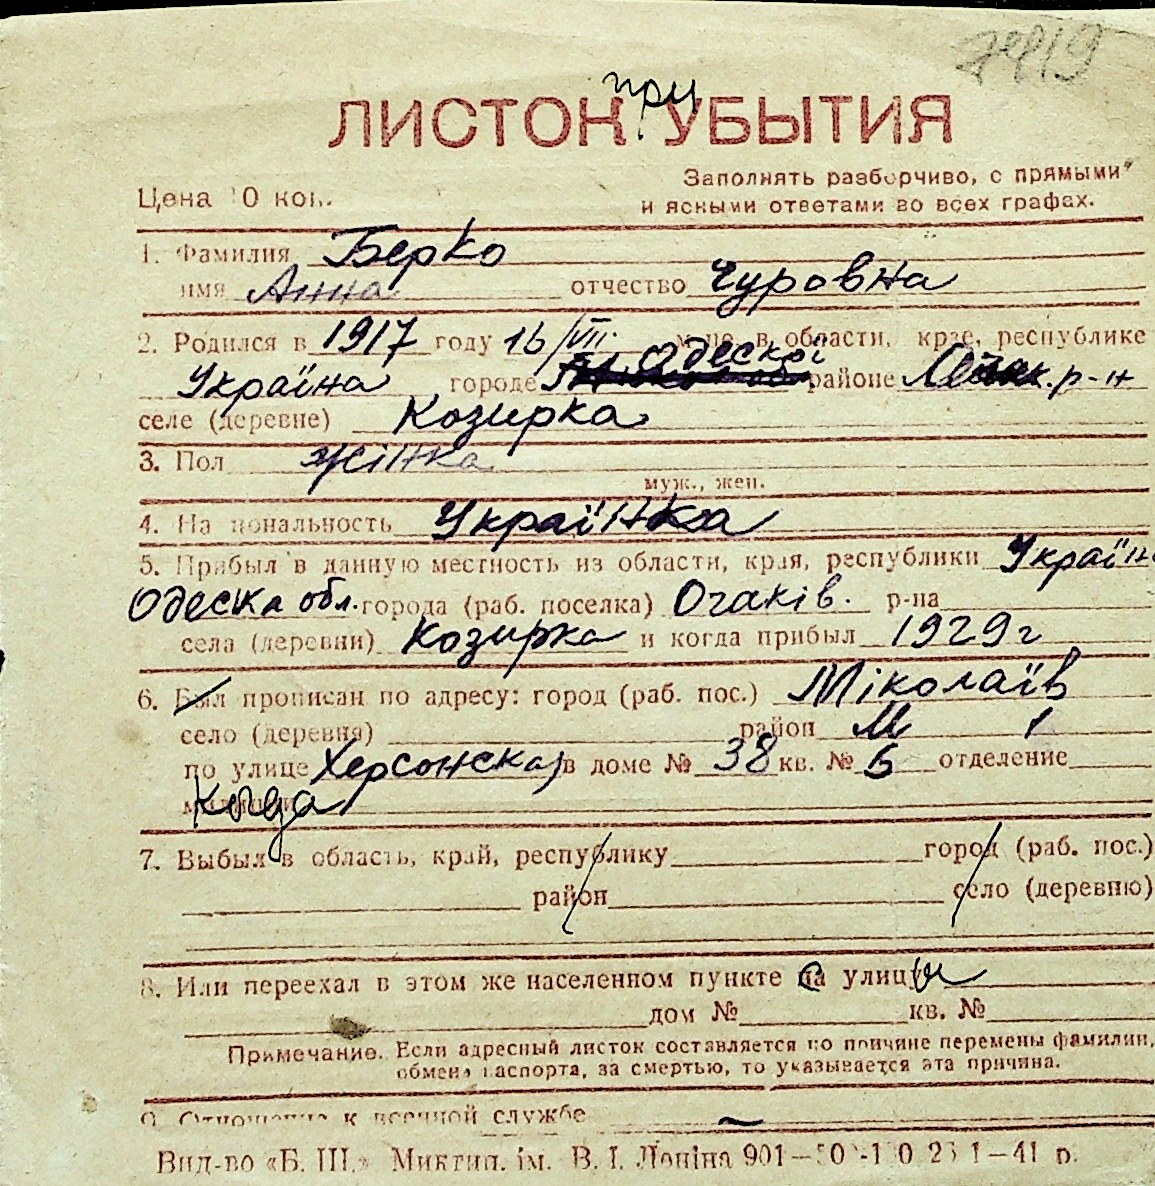 при
ЛИСТОК УБЫТИЯ
Цена 10 коп.
Заполнять разборчиво, с прямыми
и ясными ответами во всех графах.
1. Фамилия Берко
имя Анна отчество Чуровна
2. Родился в 1917 году 16/VII. м-це, в области, крае, республике
Одескої
Україна городе районе р-н
селе (деревне) Козирка
3. Пол жінка
муж., жен.
4. Национальность Українка
5. Прибыл в данную местность из области, края, республики Україн
Одеска обл. города (раб. поселка) Очаків. р-на
села (деревни) Козирка и когда прибыл 1929 г
6. Был прописан по адресу: город (раб. пос.) Міколаїв
село (деревня) район М 1
по улице Херсонская в доме № 38 кв. № 5 отделение
милиции Когда
7. Выбыл в область, край, республику город (раб. пос.)
район село (деревню)
8. Или переехал в этом же населенном пункте с улицы
дом № кв. №
Примечание. Если адресный листок составляется по причине перемены фамилии,
обмена паспорта, за смертью, то указывается эта причина.
9. Отношение к военной службе —
Вид-во «Б. Ш.» Миктип. ім. В. І. Леніна 901—50 1—41 р.